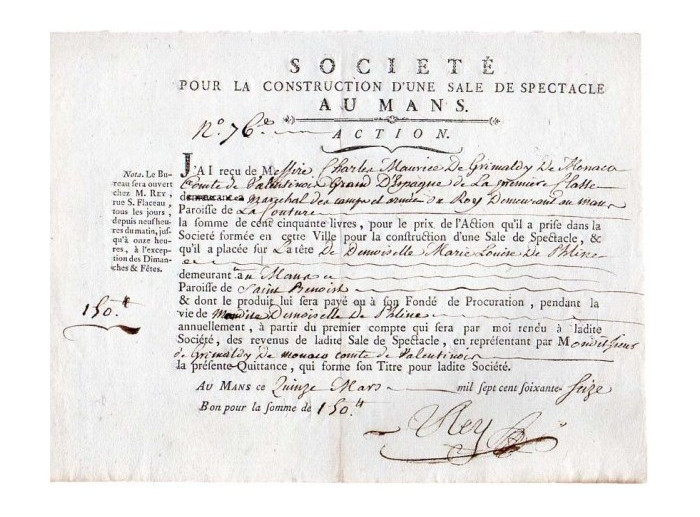 SOCIETÉ
POUR LA CONSTRUCTION D'UNE SALE DE SPECTACLE
AU MANS.
N.º 76.
ACTION.
Nota. Le Bu-
reau sera ouvert
chez M. REY,
rue S. Flaceau,
tous les jours,
depuis neuf heu-
res du matin, jus-
qu'à onze heu-
res, à l'excep-
tion des Diman-
ches & Fêtes.
J'AI reçu de Messire Charles Maurice De Grimaldy De Monaco
Comte de Valentinois Grand D'Espagne de La premiere Classe
marechal des camps et armées du Roy Demeurant au mans
Paroisse de La Couture
la somme de cent cinquante livres, pour le prix de l'Action qu'il a prise dans la
Societé formée en cette Ville pour la construction d'une Sale de Spectacle, &
qu'il a placée sur La tête De Demoiselle Marie Louise De
demeurant au Mans
Paroisse de Saint Benoist
& dont le produit lui sera payé ou à son Fondé de Procuration, pendant la
150.ᵗᵗ
vie de Demoiselle De
annuellement, à partir du premier compte qui sera par moi rendu à ladite
Société, des revenus de ladite Sale de Spectacle, en représentant par Mondit Sieur
de Grimaldy De monaco comte de Valentinois
la présente Quittance, qui forme son Titre pour ladite Société.
AU MANS ce Quinze Mars mil sept cent soixante Seize
Bon pour la somme de 150.ᵗᵗ
Rey